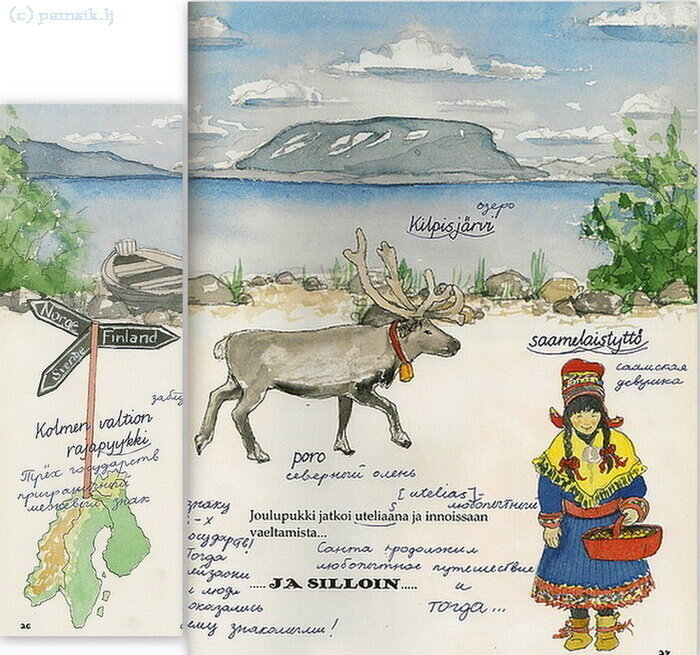 (c) pamsik.lj
озеро
Kilpisjärvi
Norge
Finland
Sverige
saamelaistyttö
саамская
девушка
Kolmen valtion
rajapyykki
Трёх государств
приграничный
межевый знак
poro
северный олень
[utelias]
любопытный
Joulupukki jatkoi uteliaana ja innoissaan
vaeltamista...
Санта продолжил
любопытное путешествие
и
тогда...
..... JA SILLOIN .....
знаку
-х
государств!
Тогда
и люди
оказались
знакомыми!
26
27